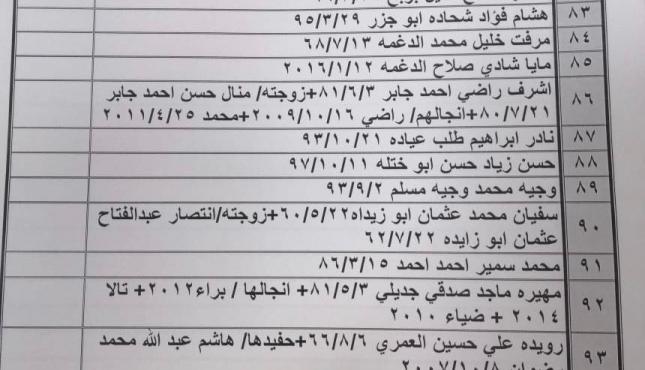 ٨٣ هشام فؤاد شحاده ابو جزر ٩٥/٣/٢٩
٨٤ مرفت خليل محمد الدغمه ٦٨/٧/١٣
٨٥ مايا شادي صلاح الدغمه ٢٠١٦/١/١٢
٨٦ اشرف راضي احمد جابر ٨١/٦/٣+زوجته/ منال حسن احمد جابر
٨٠/٧/٢١+انجالهم/ راضي ٢٠٠٩/١٠/١٦+محمد ٢٠١١/٤/٢٥
٨٧ نادر ابراهيم طلب عياده ٩٣/١٠/٢١
٨٨ حسن زياد حسن ابو ختله ٩٧/١٠/١١
٨٩ وجيه محمد وجيه مسلم ٩٣/٩/٢
٩٠ سفيان محمد عثمان ابو زيداه٦٠/٥/٢٢+زوجته/انتصار عبدالفتاح
عثمان ابو زايده ٦٢/٧/٢٢
٩١ محمد سمير احمد احمد ٨٦/٣/١٥
٩٢ مهيره ماجد صدقي جديلي ٨١/٥/٣+ انجالها / براء٢٠١٢+ تالا
٢٠١٤ + ضياء ٢٠١٠
٩٣ رويده علي حسين العمري ٦٦/٨/٦+حفيدها/ هاشم عبد الله محمد
رمضان ٢٠٠٧/١٠/٨